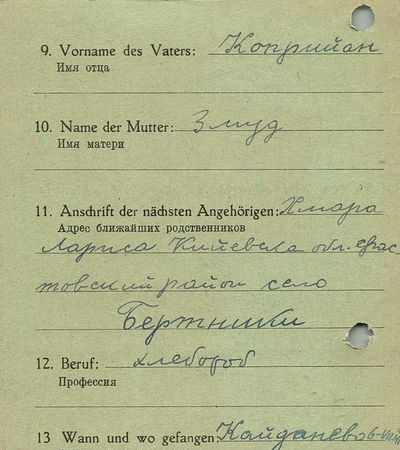 9. Vorname des Vaters: Коприйан
Имя отца
10. Name der Mutter: Змуд
Имя матери
11. Anschrift der nächsten Angehörigen: Хмара
Адрес ближайших родственников
Лариса Кийевска обл. Фас-
товский район село
Бертники
12. Beruf: хлебороб
Профессия
13 Wann und wo gefangen: Кайданево